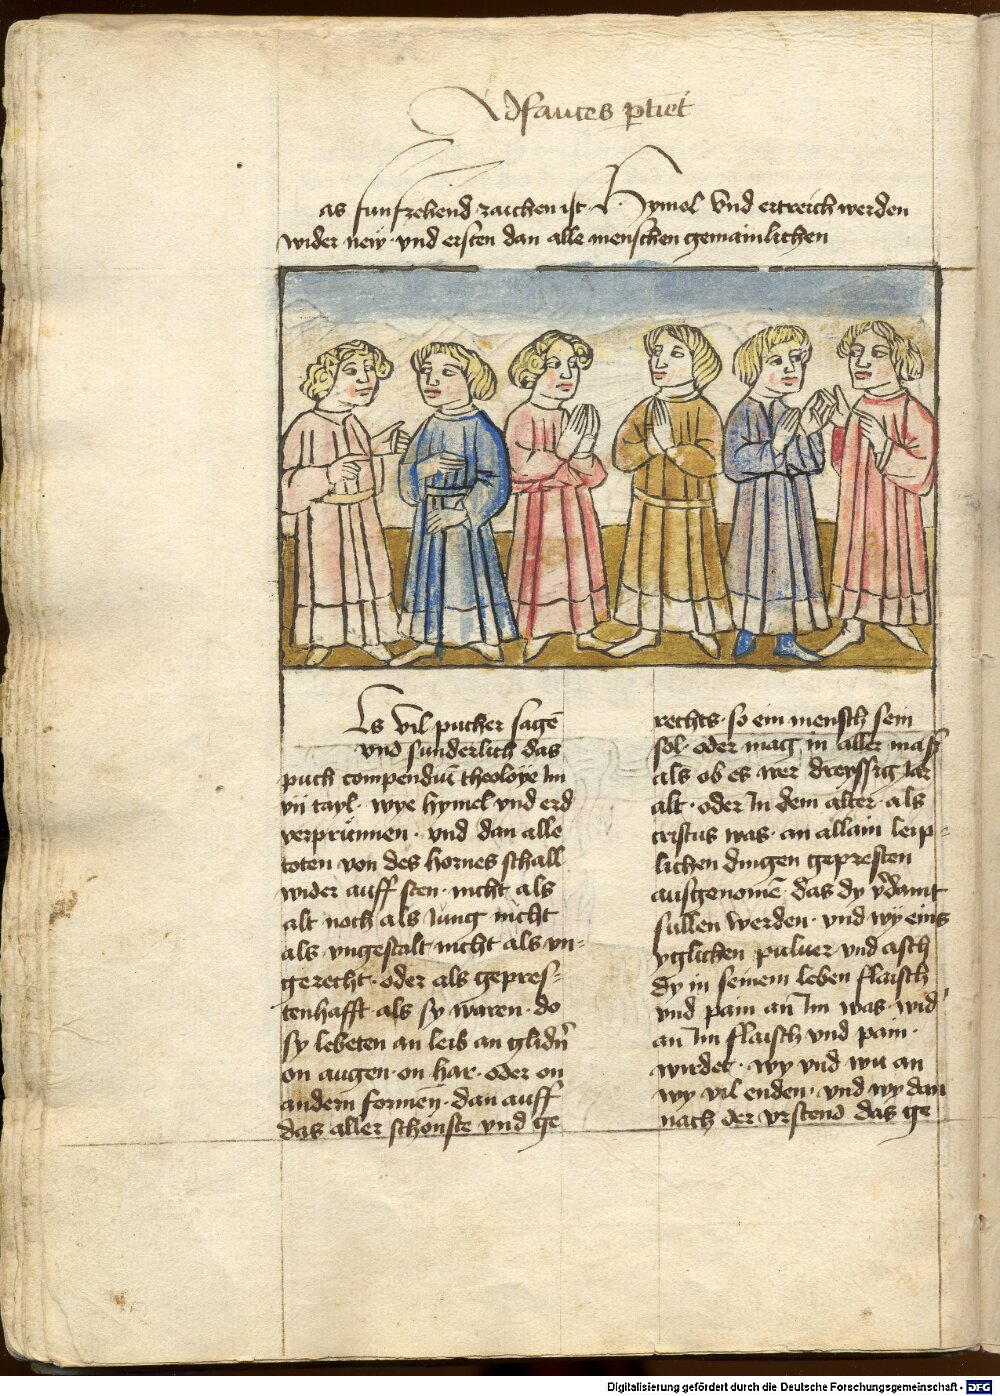 as funfzehend zaichen ist Hymel vnd ertreich werden
wider neẅ vnd ersten dan alle menschen gemainlichen
Ls vil pucher sagē
vnd sunderlich das
puch compendiū theoloye Im
vij tayl · wye hymel vnd erd
verprünnen · vnd dan alle
toten von des hornes schall
wider auff sten · nicht als
alt noch als Jung nicht
als vngestalt nicht als vn-
gerecht · oder als gepres-
tenhafft als sy waren · do
sy lebeten an leib an glidn̄
on augen · on har · oder on
andern formen · dan auff
das aller schonste vnd ge
rechts · so ein mensch sein
sol · oder mag in aller mass
als ob es wer dreyssig Jar
alt · oder In dem alter als
cristus was · an allain leip-
lichen dingen gepresten
ausgenomē das dy v̄damt
sullen werden · vnd wÿ eins
yglichen puluer vnd asch
dy in seinem leben flaisch
vnd pain an Im was · wid'
an Im flaisch vnd pain ·
wirdet · wy vnd wu an
wy vil enden · vnd wy dan
nach der vrstend das ge
Digitalisierung gefördert durch die Deutsche Forschungsgemeinschaft - DFG